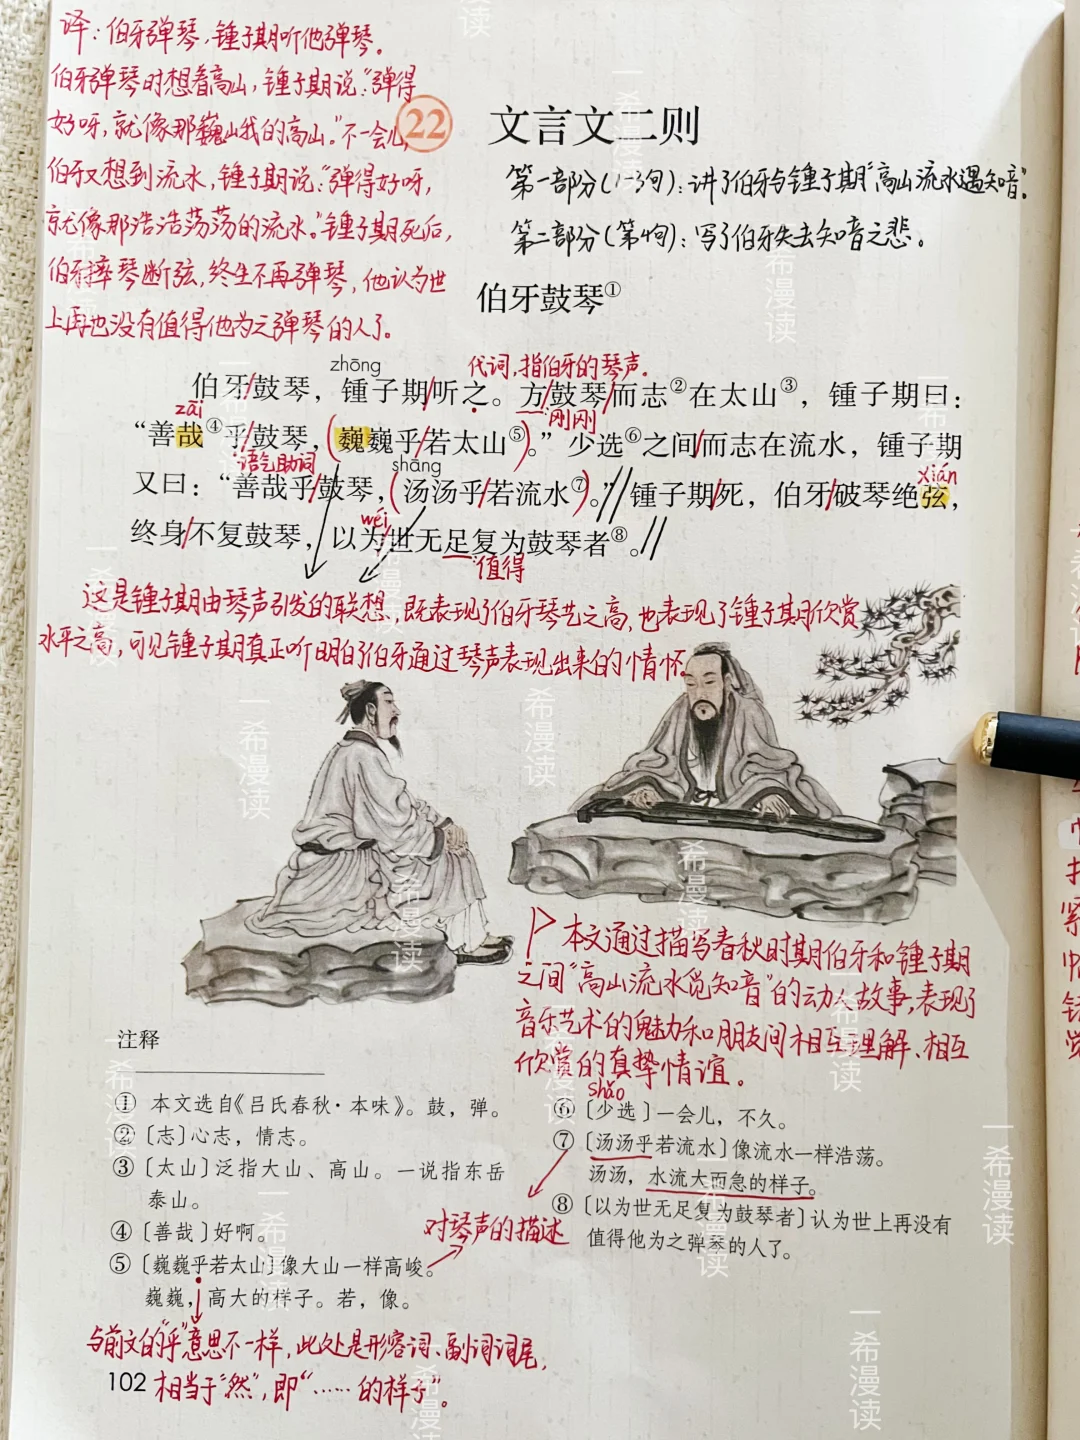 译：伯牙弹琴，锺子期听他弹琴。
伯牙弹琴时想着高山，锺子期说：“弹得
好呀，就像那巍巍峨峨的高山。”不一会儿，
伯牙又想到流水，锺子期说：“弹得好呀，
就像那浩浩荡荡的流水。”锺子期死后，
伯牙摔琴断弦，终生不再弹琴，他认为世
上再也没有值得他为之弹琴的人了。
22 文言文二则
第一部分（1-3句）：讲了伯牙与锺子期“高山流水遇知音”。
第二部分（第4句）：写了伯牙失去知音之悲。
伯牙鼓琴①
zhōng
代词，指伯牙的琴声。
伯牙/鼓琴，锺子期/听之。方/鼓琴/而志②在太山③，锺子期曰：
zāi
刚刚
“善哉④乎/鼓琴，（巍巍乎/若太山⑤）。”少选⑥之间/而志在流水，锺子期
语气助词
shāng
xián
又曰：“善哉乎/鼓琴，（汤汤乎/若流水⑦）。”//锺子期/死，伯牙/破琴绝弦，
wéi
终身/不复鼓琴，以为/世无足复为鼓琴者⑧。//
值得
这是锺子期由琴声引发的联想，既表现了伯牙琴艺之高，也表现了锺子期欣赏
水平之高，可见锺子期真正听明白了伯牙通过琴声表现出来的情怀。
本文通过描写春秋时期伯牙和锺子期
之间“高山流水觅知音”的动人故事，表现了
音乐艺术的魅力和朋友间相互理解、相互
欣赏的真挚情谊。
注释
① 本文选自《吕氏春秋·本味》。鼓，弹。
②〔志〕心志，情志。
③〔太山〕泛指大山、高山。一说指东岳
泰山。
④〔善哉〕好啊。
⑤〔巍巍乎若太山〕像大山一样高峻。
巍巍，高大的样子。若，像。
shǎo
⑥〔少选〕一会儿，不久。
⑦〔汤汤乎若流水〕像流水一样浩荡。
汤汤，水流大而急的样子。
⑧〔以为世无足复为鼓琴者〕认为世上再没有
值得他为之弹琴的人了。
对琴声的描述
与前文的“乎”意思不一样，此处是形容词、副词词尾，
相当于“然”，即“……的样子”。
102
一希漫读